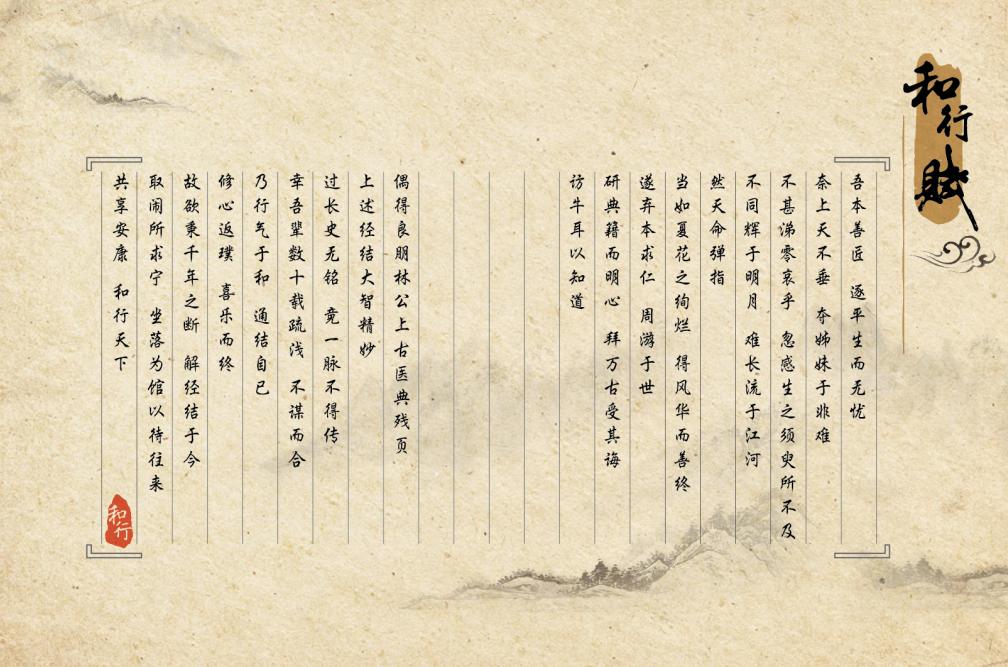 和行赋
吾本善匠 逐平生而无忧
奈上天不垂 夺姊妹于非难
不甚涕零哀乎 忽感生之须臾所不及
不同辉于明月 难长流于江河
然天命弹指
当如夏花之绚烂 得风华而善终
遂弃本求仁 周游于世
研典籍而明心 拜万古受其诲
访牛耳以知道
偶得良朋林公上古医典残页
上述经结大智精妙
过长史无铭 竟一脉不得传
幸吾辈数十载疏浅 不谋而合
乃行气于和 通结自已
修心返璞 喜乐而终
故欲秉千年之断 解经结于今
取闹所求宁 坐落为馆以待往来
共享安康 和行天下
和行